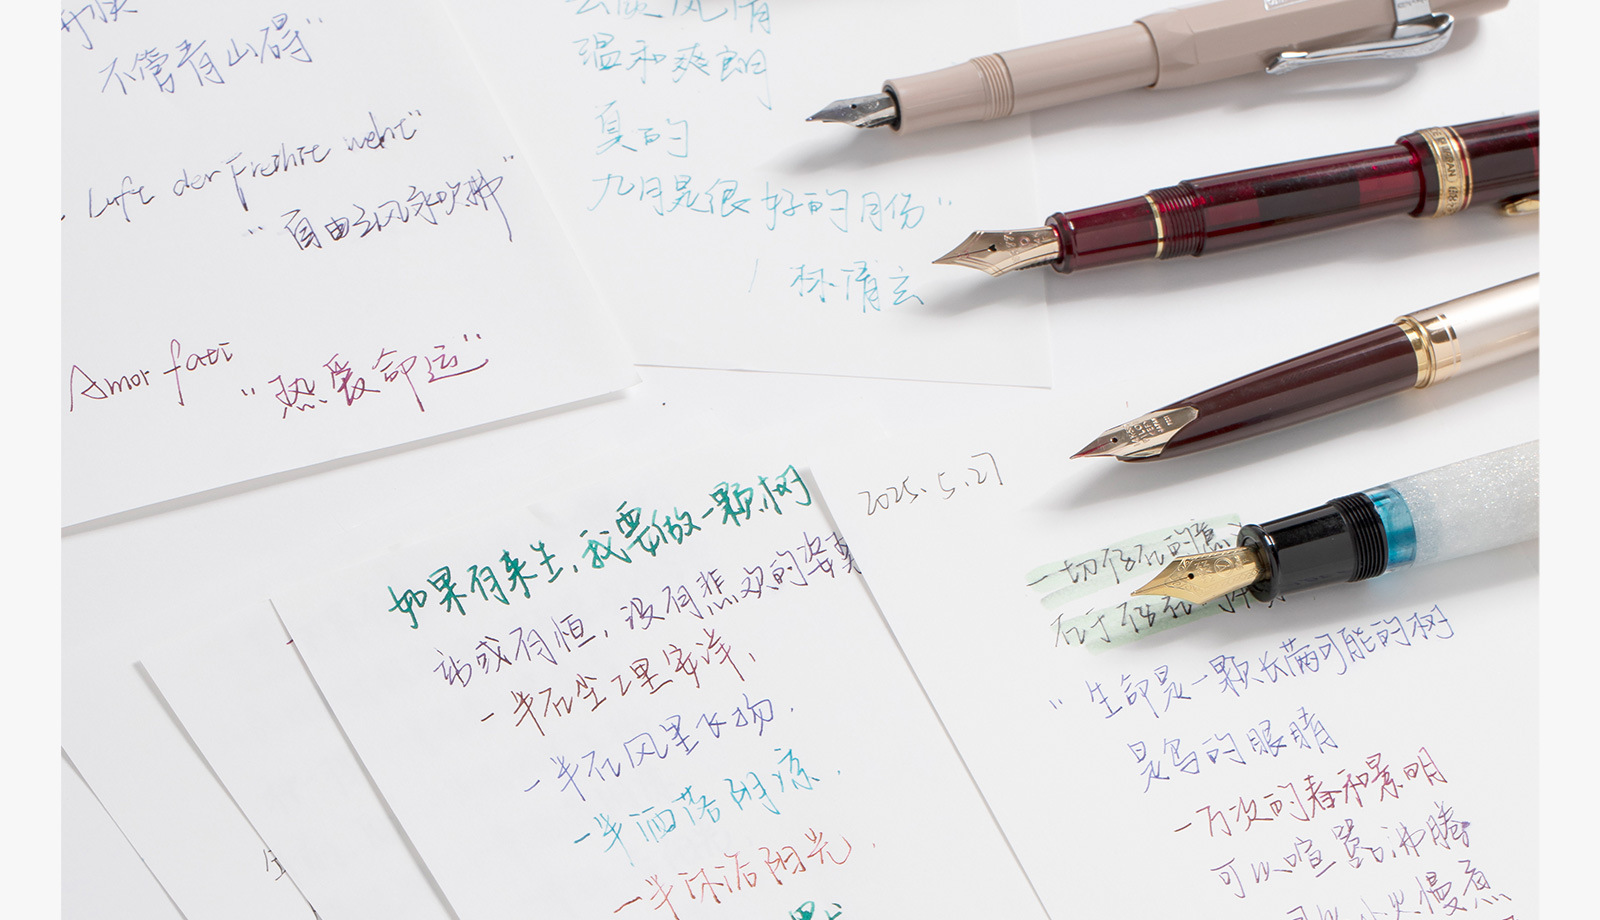 不管青山碍"
Luft der Freihte weht"
"自由之风永吹拂"
Amor fati
"热爱命运"
温和爽朗
真的
九月是很好的月份"
/ 林清玄
如果有来生,我要做一颗树
站成有恒,没有悲欢的姿
一半在尘土里安详,
一半在风里飞扬.
一半洒落阴凉.
一半沐浴阳光.
2025.5.27
一切存在的
在于存在
"生命是一颗长满可能的树
是鸟的眼睛
一万次的春和景明
可以喧嚣沸腾
小火慢煮